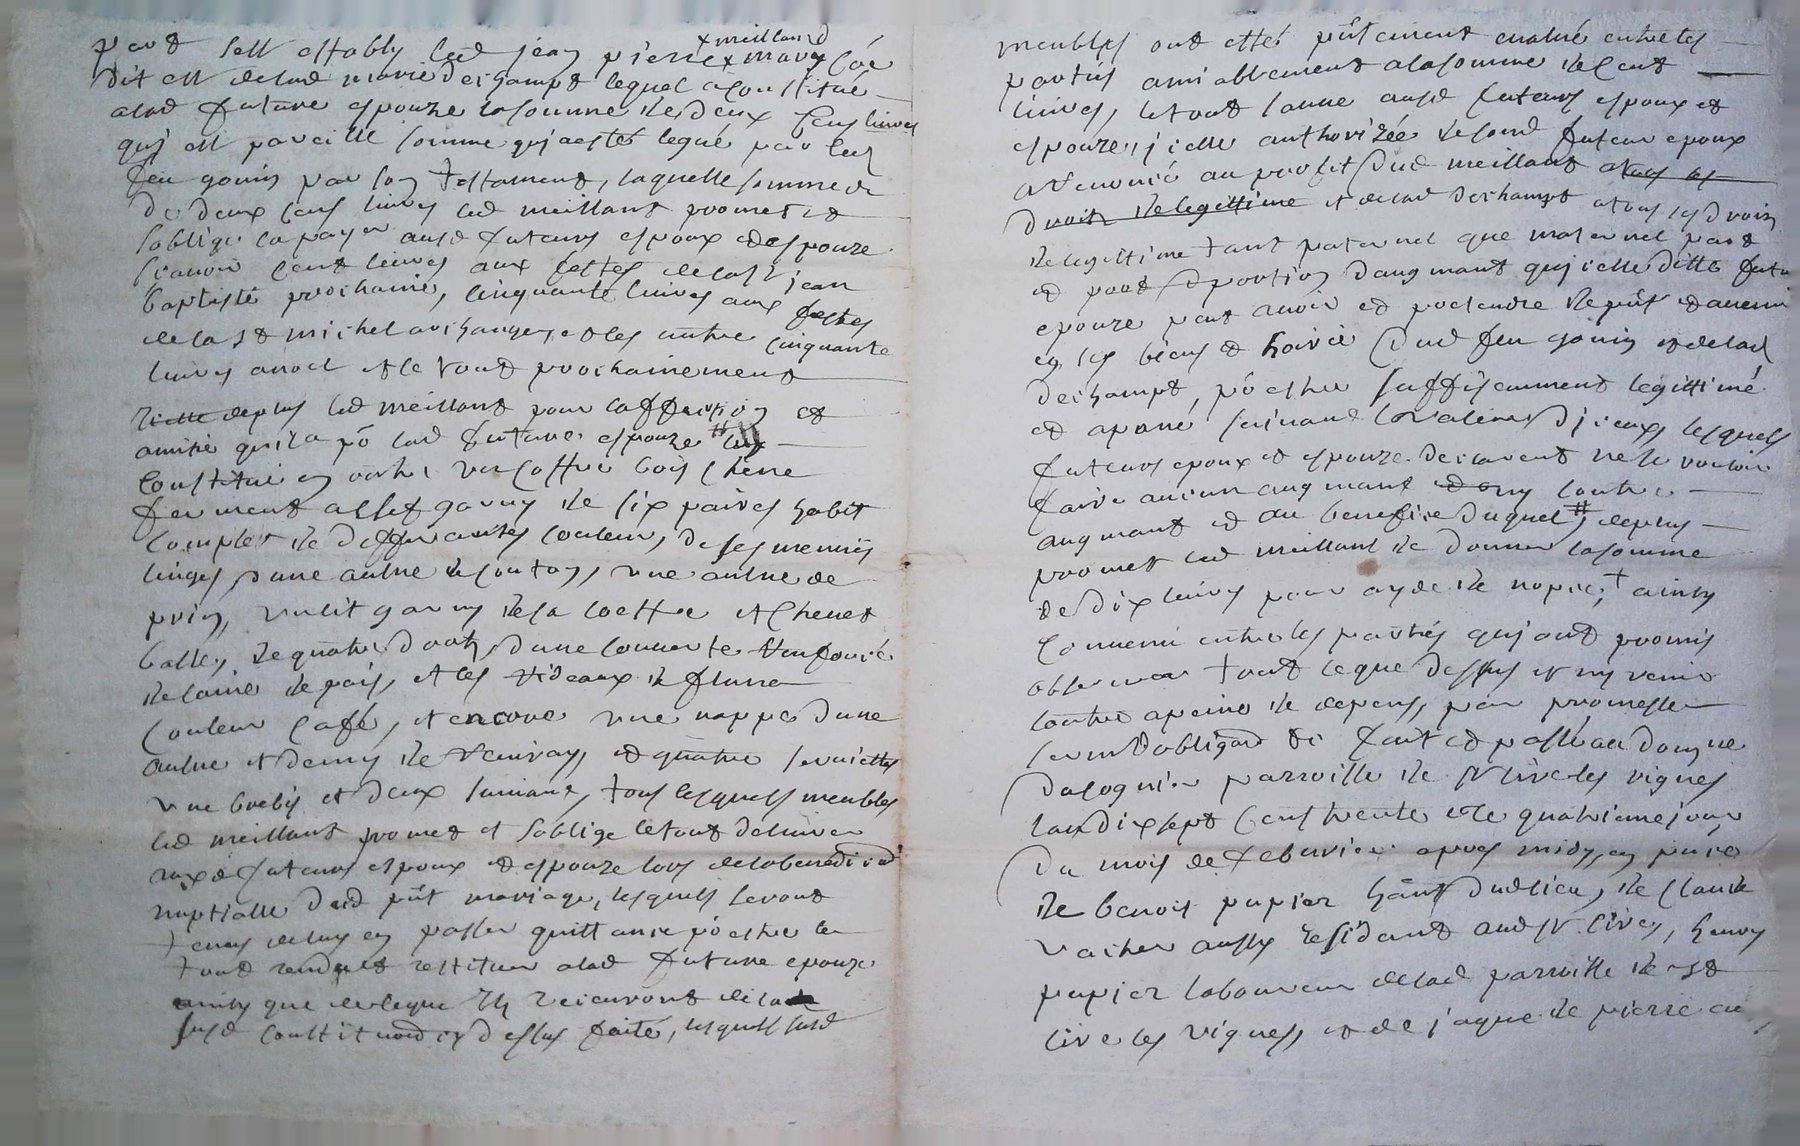 x meilland
part sest estably led jean pierre x mary
dit est delad marie deschampt lequel a constitué
alad future espouze la somme de deux cens livres
qui est pareille somme qui a esté legué par led
feu gonin par son testament, laquelle somme de
de deux cens livres led meillant promet et
soblige la payer ausd futeurs espoux et espouze
scavoir cent livres aux festes de la st jean
baptiste prochaine, cinquante livres aux festes
de la st michel archange, et les autre cinquante
livres a noel et le tout prochainement
de plus led meillant pour laffection et
amitié quil a po lad future espouze #
constitué en outre un coffre bois chene
ferment a clef garny de six paires habit
complet de differantes couleurs, de ses menus
linges, d'une aulne de couton, une aulne de
prin, un lit garny de sa coettre et chevet
balle, de quatre draps d'une couverte
de laine de pais, et les rideaux de
couleur café, et encore une nappe d'une
aulne et demy de et quatre serviettes
une brebis et deux suivant, tous lesquels meubles
led meillant promet et soblige le tout delivrer
auxd futeurs espoux et espouze lors de la benediction
nuptialle dud pnt mariage, lesquels seront
tenus de luy en passer quittance po estre le
tout rendu et restitué alad future epouze
ainsy que de ce que ils recevront de la
susd constituon cy dessus faite, lesquels susd
meubles ont estés pntement evalué entre les
parties amiablement a la somme de cent
livres, le tout comme ausd futeurs espoux et
espouze, icelle authorizée de sond futeur epoux
a renoncé au profit dud meillant a tous
droits de legittime et delad deschampt a tous ses droits
de legittime tant paternel que maternel part
et portion d'augmant qui icelle ditte future
epouze peut avoir et pretendre de pnt et avenir
en les biens et hoirie dud feu gonin et delad
deschampt, po estre suffisamment legittimé
et apané suivant la valeur d'iceux, lesquels
futeurs epoux et espouze declarent ne se vouloir
faire aucun augmant ny contre
augmant et au benefice duquel # de plus
promet led meillant de donner la somme
de dix livres pour ayde de nopce, + ainsy
convenu entre les parties qui ont promis
observer tout ce que dessus et ny venir
contre a peine de depens, par promesse
serm obligaon &c fait et passé au domene
dalognier parroisse de St Cire les vignes
lan dix sept cens trente et le quatrieme jour
du mois de febvrier apres midy, en pnce
de benoit papier habt dud lieu, de claude
vacher aussy residant aud St Cire, henry
papier laboureur delad parroisse de St
Cire les vignes, et de jaque de pierre